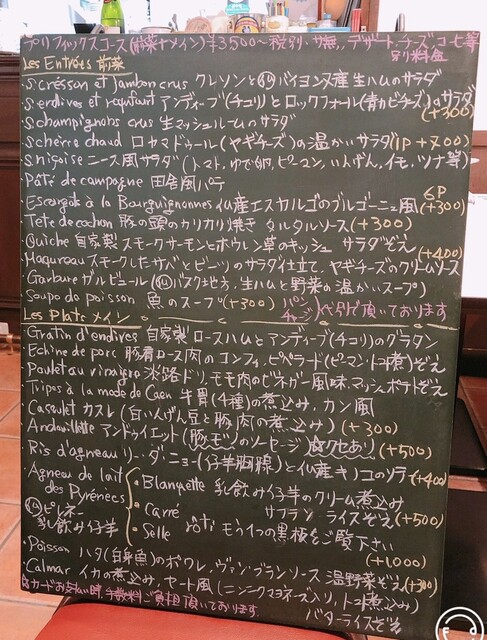 プリフィックスコース(前菜+メイン)¥3,500〜 税別・サ無,, デザート、チーズ、コーヒー等
別り料金
Les Entrées 前菜
S.cresson et Jambon crus クレソンと仏バイヨンヌ産生ハムのサラダ
S.endives et roquefort アンディーブ(チコリ)とロックフォール(青カビチーズ)のサラダ
(+300)
S.champignons crus 生マッシュルームのサラダ
S.chèvre chaud ロカマドゥール(ヤギチーズ)の温かいサラダ(1P +700)
S.niçoise ニース風サラダ(トマト、ゆで卵、ピーマン、いんげん、イモ、ツナ等)
Pâté de campagne 田舎風パテ
Escargots à la Bourguignonnes 仏産エスカルゴのブルゴーニュ風 6P (+300)
Tête de cochon 豚の頭のカリカリ焼き タルタルソース(+300)
Quiche 自家製スモークサーモンとホウレン草のキッシュ サラダぞえ
(+400)
Maquereau スモークしたサバとビーツのサラダ仕立て、ヤギチーズのクリームソース
Garbure ガルビュール(仏バスク地方、生ハムと野菜の温かいスープ)
Soupe de poisson 魚のスープ(+300)
パン チャージ 代別で頂いております
Les Plats メイン
Gratin d'endives 自家製ロースハムとアンディーブ(チコリ)のグラタン
Echine de porc 豚肩ロース肉のコンフィ、ピペラード(ピーマン・トマト煮)ぞえ
Poulet au vinaigre 淡路ドリ、モモ肉のビネガー風味、マッシュポテトぞえ
Tripes à la mode de Caen 牛胃(4種)の煮込み、カン風
Cassoulet カスレ(白いんげん豆と豚肉の煮込み)(+300)
Andouillette アンドゥイエット(豚モツのソーセージ)クセあり(+500)
Ris d'agneau リ・ダニョー(仔羊胸腺)と仏産キノコのソテー(+400)
Agneau de lait des Pyrénées
仏ピレネー 乳飲み仔羊
・Blanquette 乳飲み仔羊のクリーム煮込み
サフランライスぞえ(+500)
・Carré
・Selle もう1つの黒板をご覧下さい
(+1,000)
Poisson ハタ(白身魚)のポワレ、ヴァンブランソース 温野菜ぞえ(+300)
Calmar イカの煮込み、セート風(ニンニクマヨネーズ入り、トマト煮込み)
バターライスぞえ
カードお支払い時、手数料ご負担頂いております